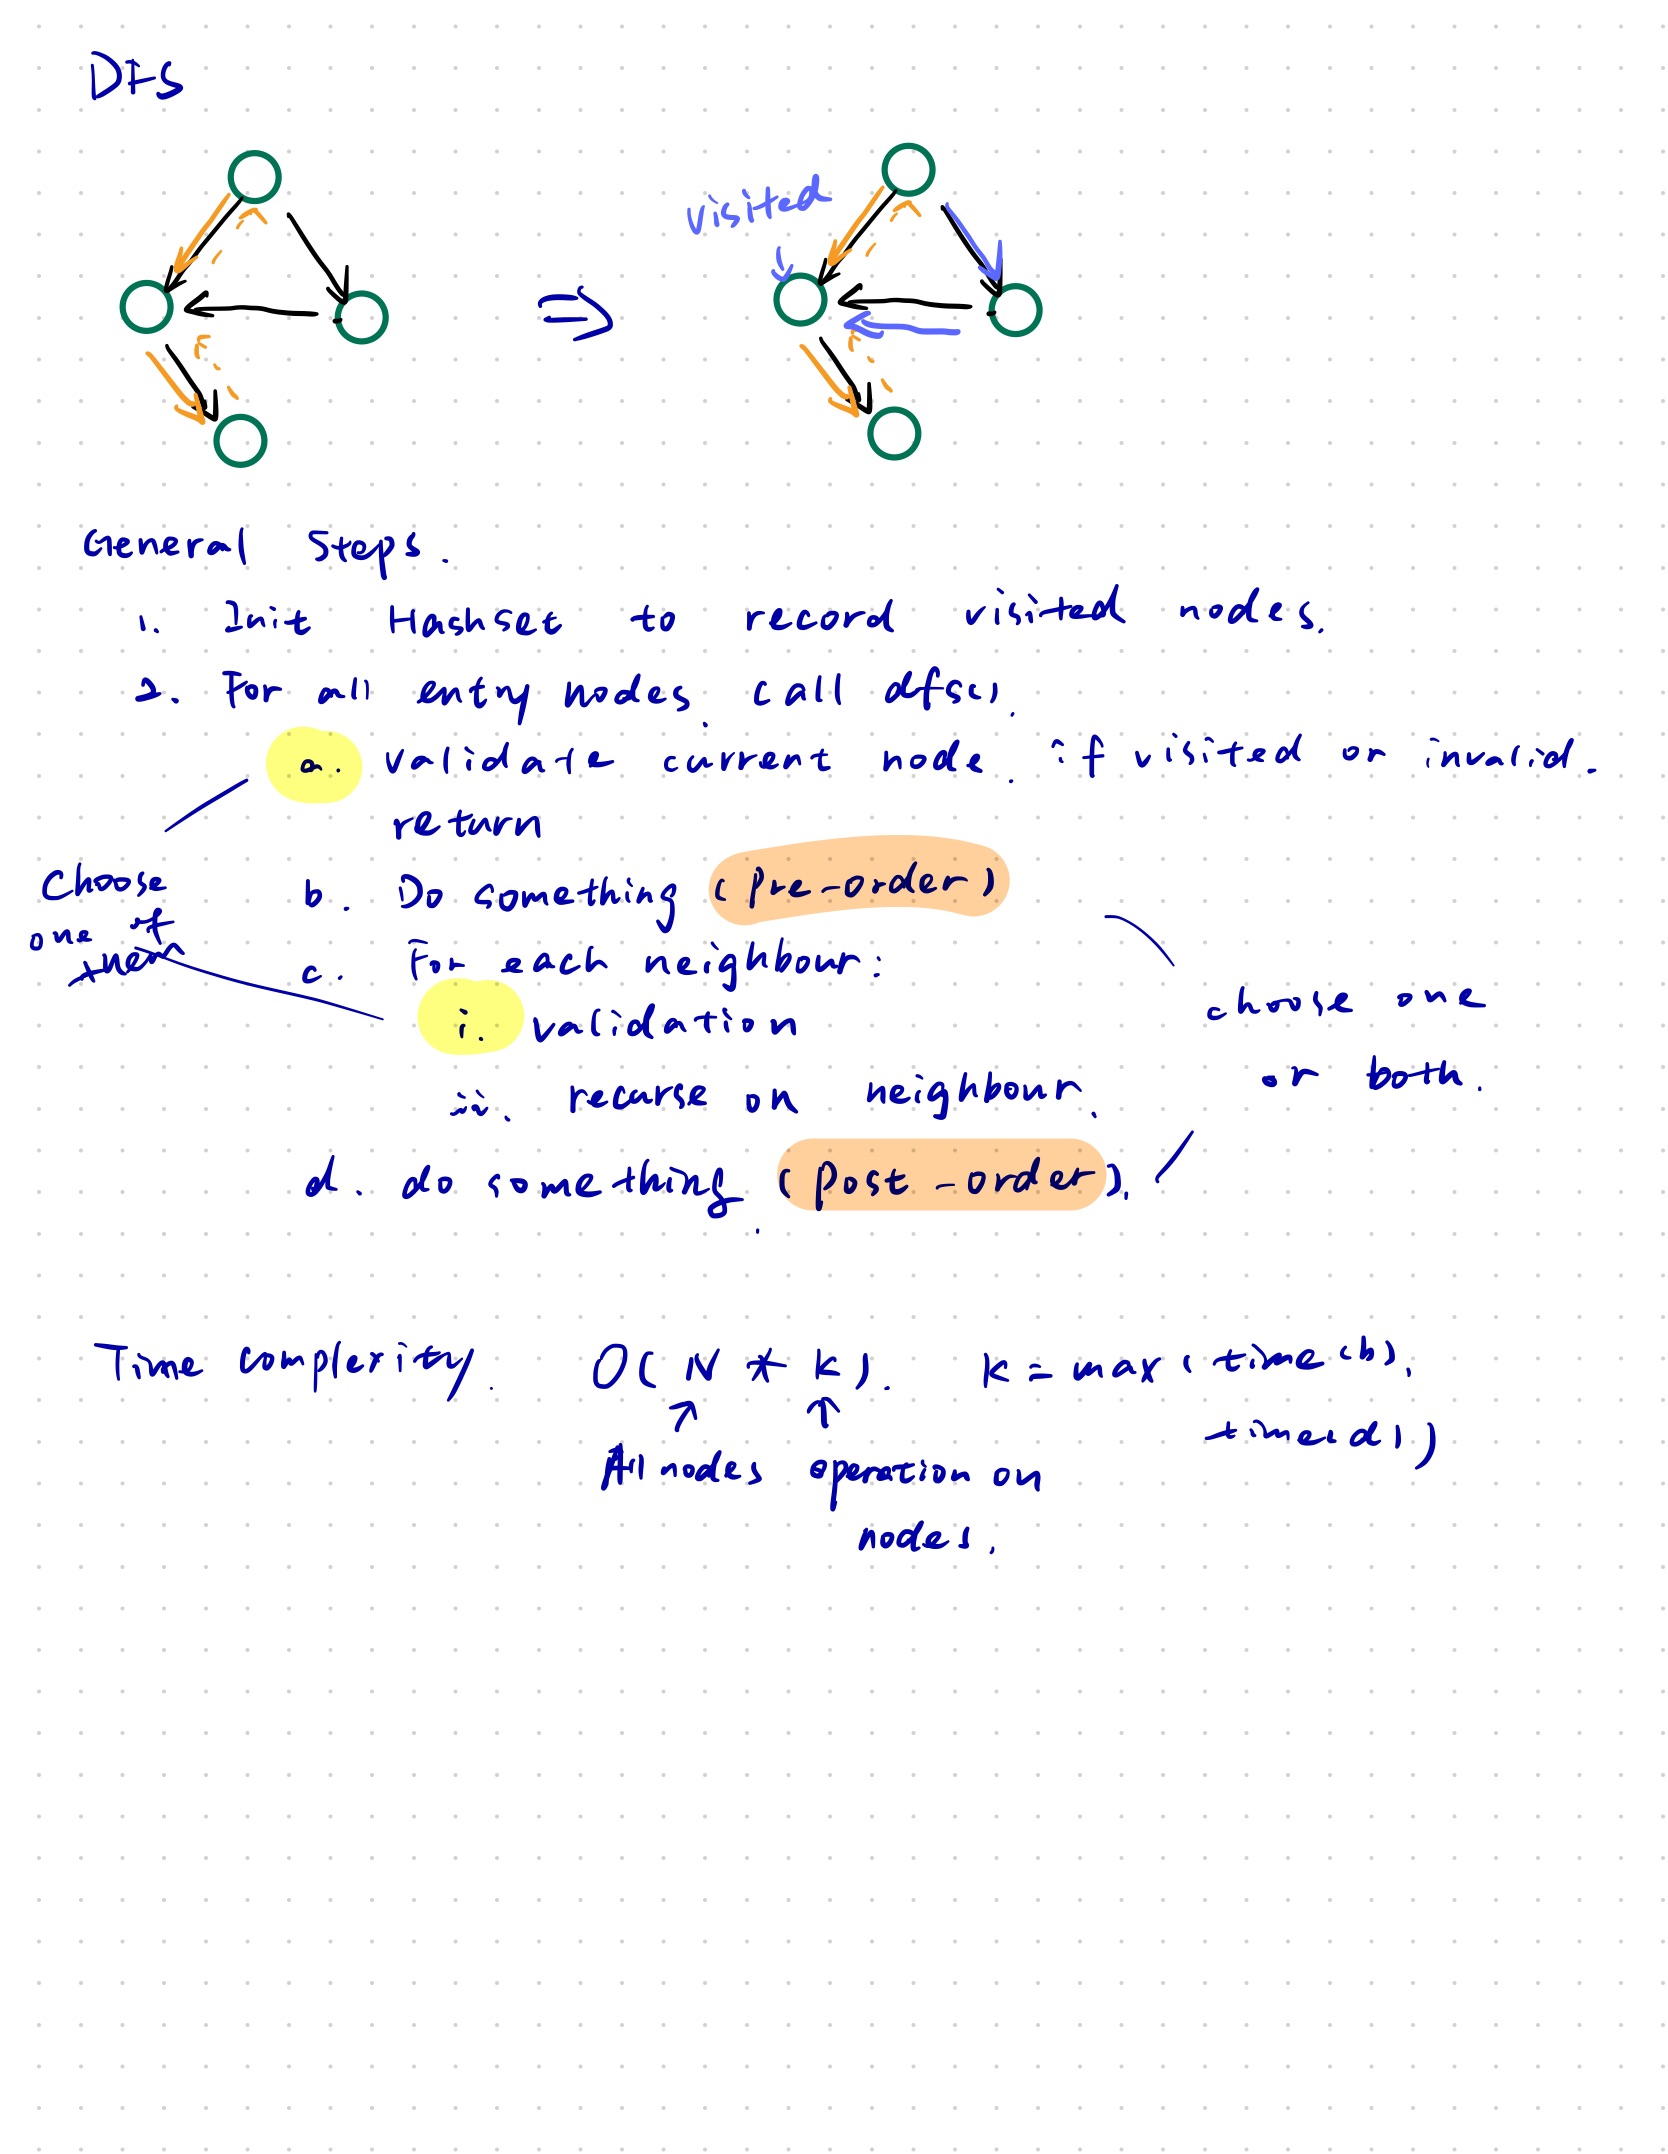 DFS
visited
General Steps.
1. Init Hashset to record visited nodes.
2. For all entry nodes. call dfs().
a. validate current node. if visited or invalid.
return
b. Do something (Pre-order)
c. For each neighbour:
i. validation
ii. recurse on neighbour.
d. do something. (post-order).
Choose
one of
them
choose one
or both.
Time complexity. O(N * K). K = max(time(b),
time(d))
All nodes operation on
nodes.